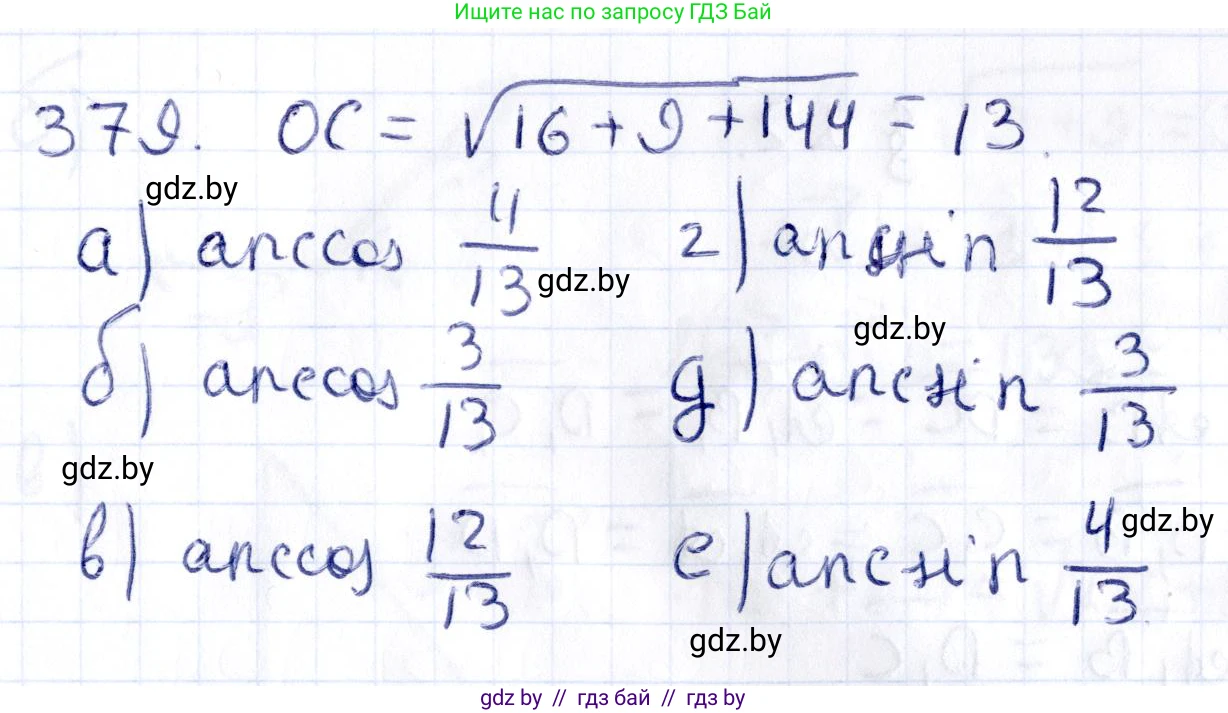 Ищите нас по запросу ГДЗ Бай
379. OC = √16 + 9 + 144 = 13.
gdz.by
а) arccos 4/13 gdz.by
г) arcsin 12/13
gdz.by
б) arccos 3/13
д) arcsin 3/13
gdz.by
в) arccos 12/13
е) arcsin 4/13 gdz.by
gdz.by
gdz.by // гдз бай // гдз by